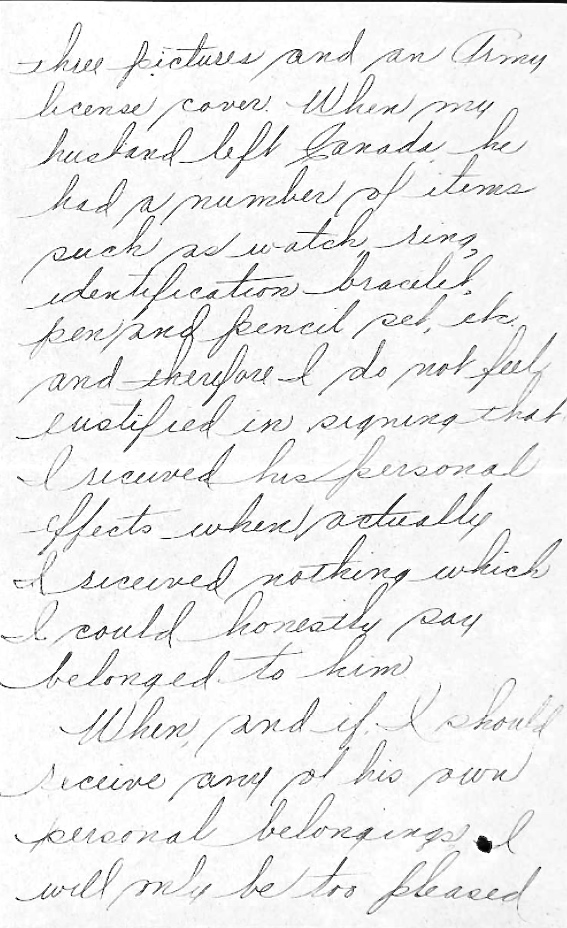 three pictures and an Army
license cover. When my
husband left Canada he
had a number of items
such as watch, ring,
identification bracelet,
pen and pencil set, etc.
and therefore I do not feel
justified in signing that
I received his personal
effects when actually
I received nothing which
I could honestly say
belonged to him
When, and if, I should
receive any of his own
personal belongings I
will only be too pleased